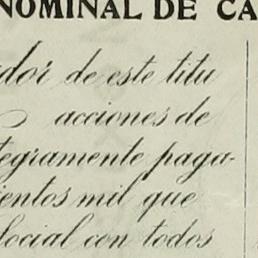 NOMINAL DE CA
ador de este titu
acciones de
tegramente paga-
ientos mil que
social con todos